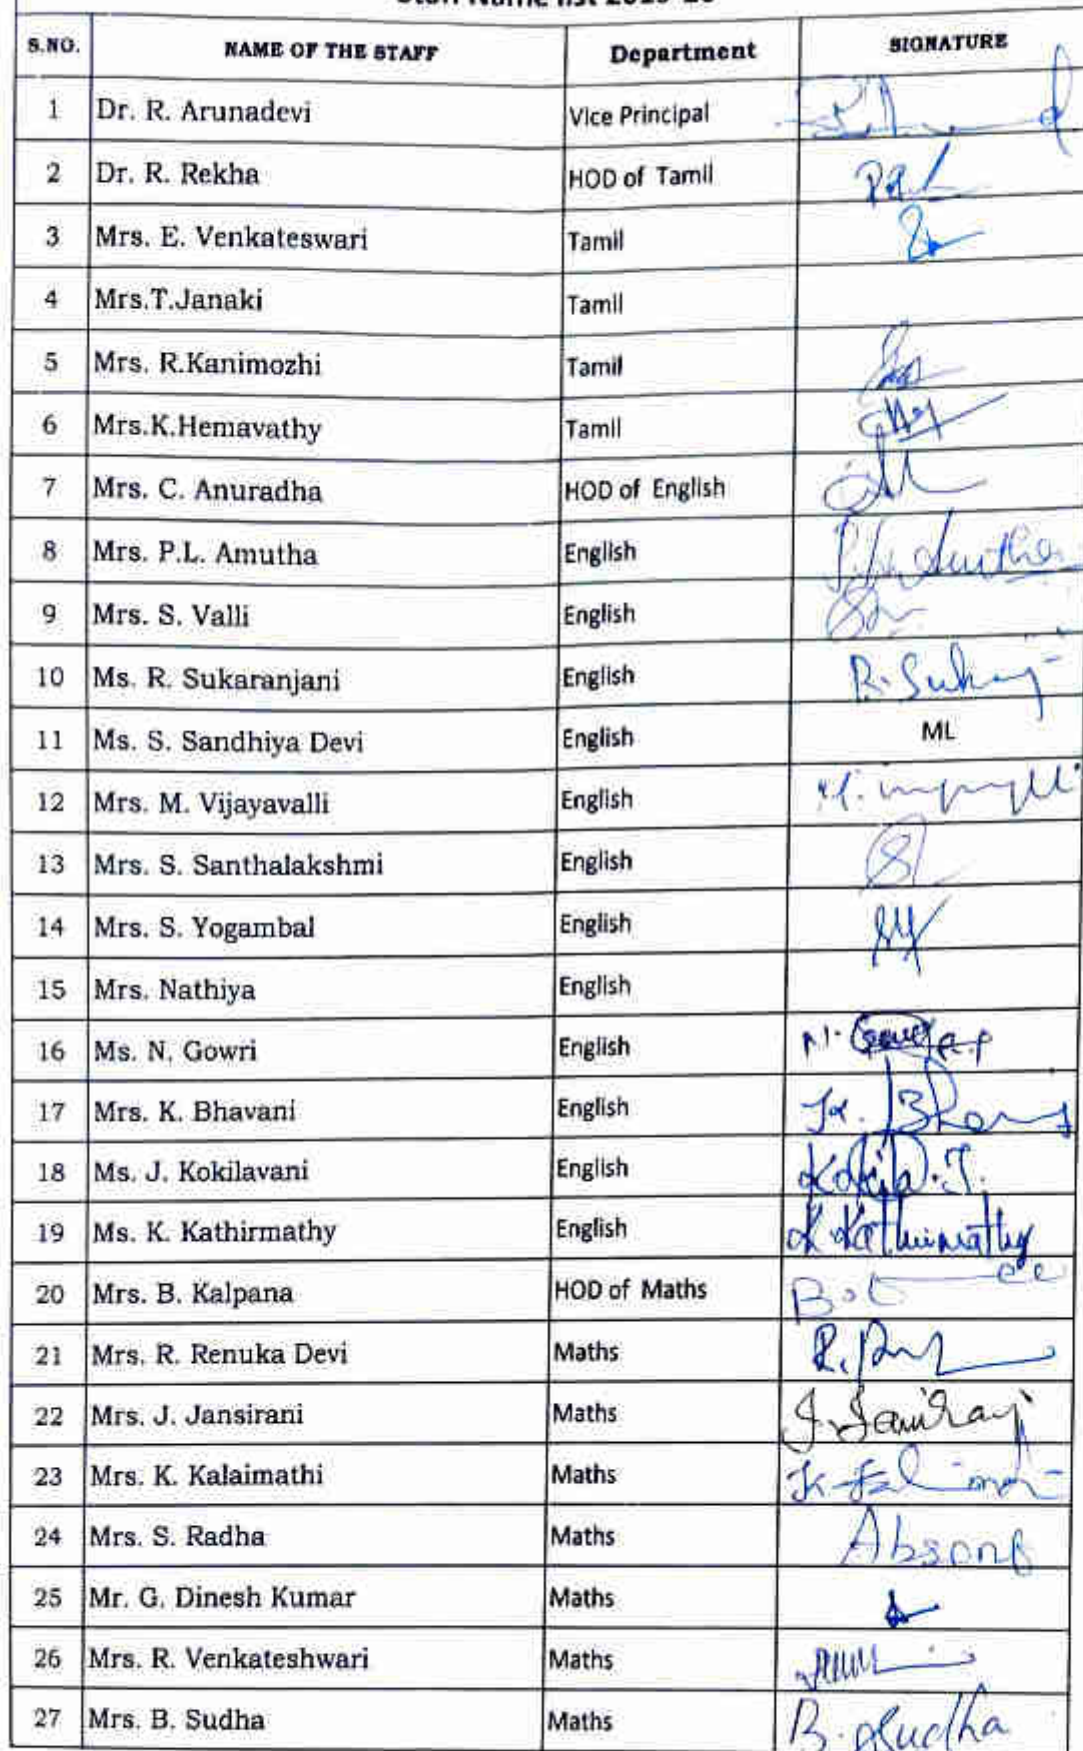 Staff Name list 2019-20
S.NO. NAME OF THE STAFF Department SIGNATURE
1 Dr. R. Arunadevi Vice Principal
2 Dr. R. Rekha HOD of Tamil
3 Mrs. E. Venkateswari Tamil
4 Mrs.T.Janaki Tamil
5 Mrs. R.Kanimozhi Tamil
6 Mrs.K.Hemavathy Tamil
7 Mrs. C. Anuradha HOD of English
8 Mrs. P.L. Amutha English
9 Mrs. S. Valli English
10 Ms. R. Sukaranjani English
11 Ms. S. Sandhiya Devi English ML
12 Mrs. M. Vijayavalli English
13 Mrs. S. Santhalakshmi English
14 Mrs. S. Yogambal English
15 Mrs. Nathiya English
16 Ms. N. Gowri English
17 Mrs. K. Bhavani English
18 Ms. J. Kokilavani English Kokila.J.
19 Ms. K. Kathirmathy English K Kathirmathy
20 Mrs. B. Kalpana HOD of Maths
21 Mrs. R. Renuka Devi Maths
22 Mrs. J. Jansirani Maths
23 Mrs. K. Kalaimathi Maths
24 Mrs. S. Radha Maths Absent
25 Mr. G. Dinesh Kumar Maths
26 Mrs. R. Venkateshwari Maths
27 Mrs. B. Sudha Maths B. Sudha